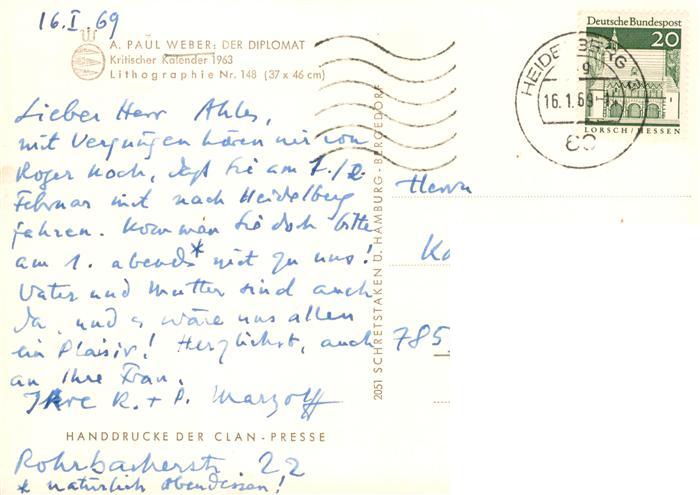 16.I.69
A. PAUL WEBER: DER DIPLOMAT
Kritischer Kalender 1963
Lithographie Nr. 148 (37 x 46 cm)
Lieber Herr Ahles,
mit Vergnügen hören wir von
Roger Koch, daß Sie am 1./2.
Februar mit nach Heidelberg
fahren. Kommen Sie doch bitte
am 1. abends* mit zu uns!
Vater und Mutter sind auch
da, und es wäre uns allen
ein Plaisir! Herzlichst, auch
an Ihre Frau,
Ihre R. + P. Marzolff
HANDDRUCKE DER CLAN-PRESSE
Rohrbacherstr. 22
* natürlich Abendessen!
2051 SCHRETSTAKEN Ü. HAMBURG-BERGEDORF
Deutsche Bundespost
20
LORSCH/HESSEN
HEIDELBERG
16.1.69
Herrn
Ko
785